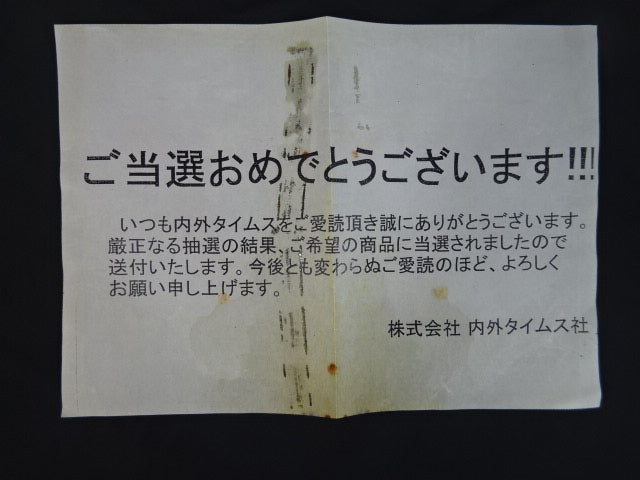 ご当選おめでとうございます!!!
いつも内外タイムスをご愛読頂き誠にありがとうございます。
厳正なる抽選の結果、ご希望の商品に当選されましたので
送付いたします。今後とも変わらぬご愛読のほど、よろしく
お願い申し上げます。
株式会社 内外タイムス社